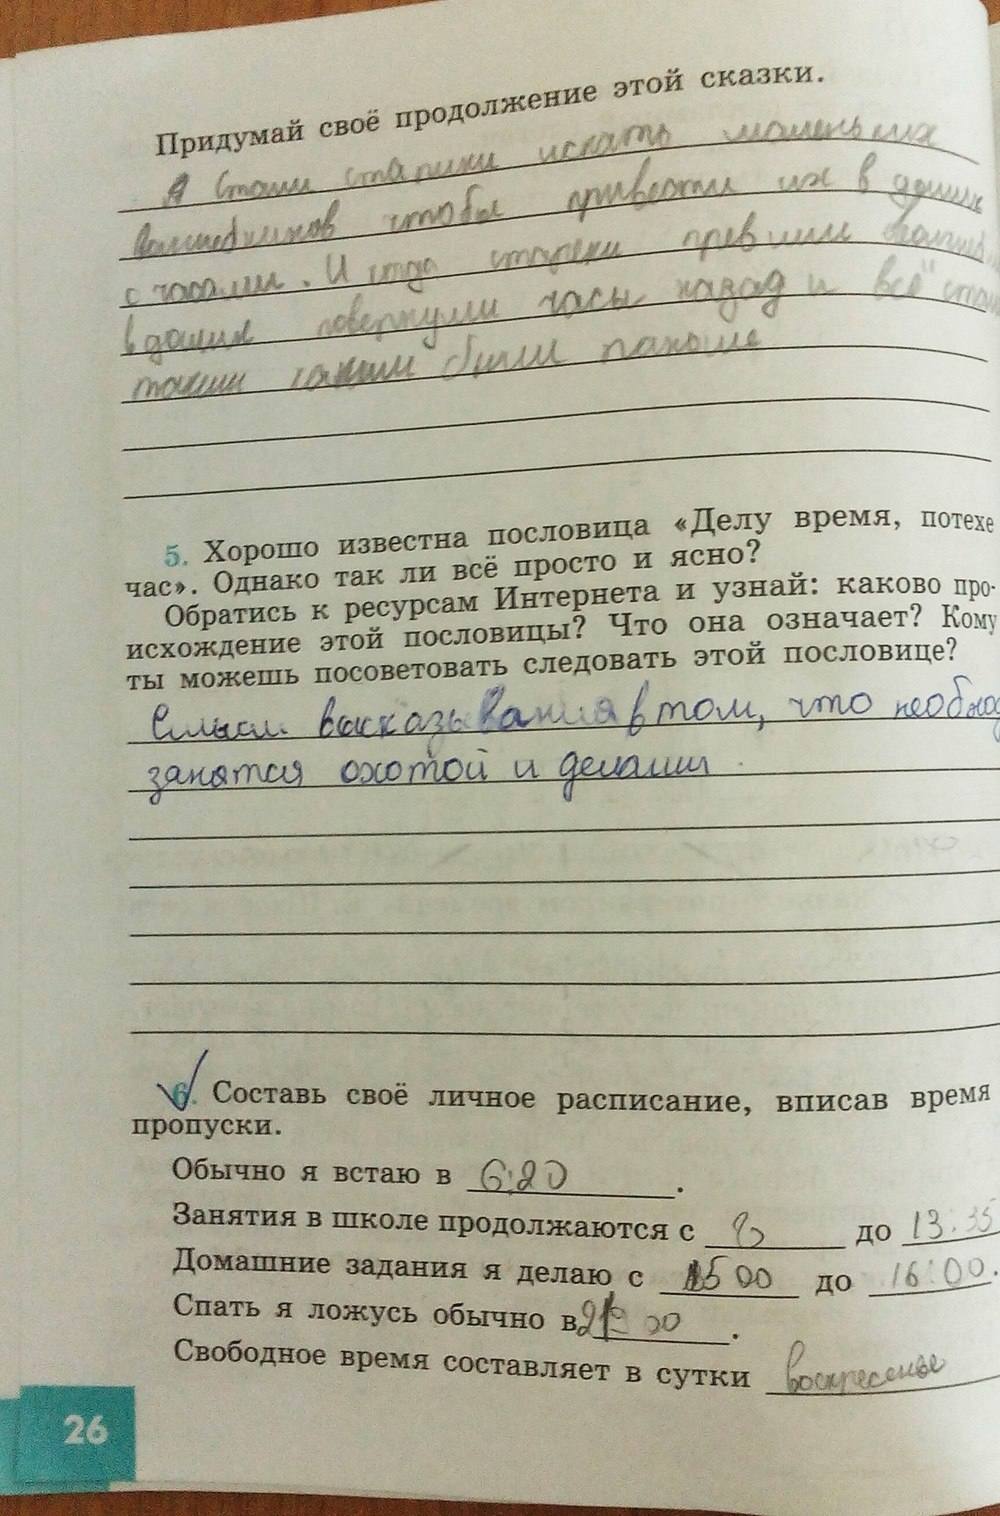 Придумай своё продолжение этой сказки.
А стали старики искать маленьких
волшебников чтобы привести их в домик
с часами. И когда старики
в домик повернули часы назад и всё стали
такими какими были раньше
5. Хорошо известна пословица «Делу время, потехе
час». Однако так ли всё просто и ясно?
Обратись к ресурсам Интернета и узнай: каково про-
исхождение этой пословицы? Что она означает? Кому
ты можешь посоветовать следовать этой пословице?
Смысл высказывания в том, что необход
занятся охотой и делами
6. Составь своё личное расписание, вписав время
пропуски.
Обычно я встаю в 6:20.
Занятия в школе продолжаются с 8 до 13:35
Домашние задания я делаю с 1500 до 16:00.
Спать я ложусь обычно в 21 00.
Свободное время составляет в сутки воскресенье
26